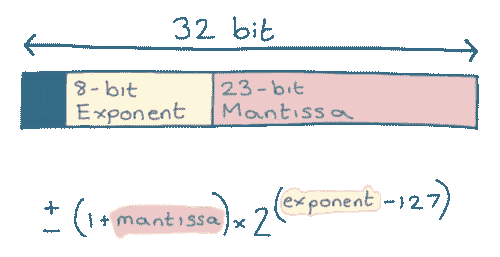 32 bit
8-bit
Exponent
23-bit
Mantissa
± (1+mantissa) × 2^(exponent -127)